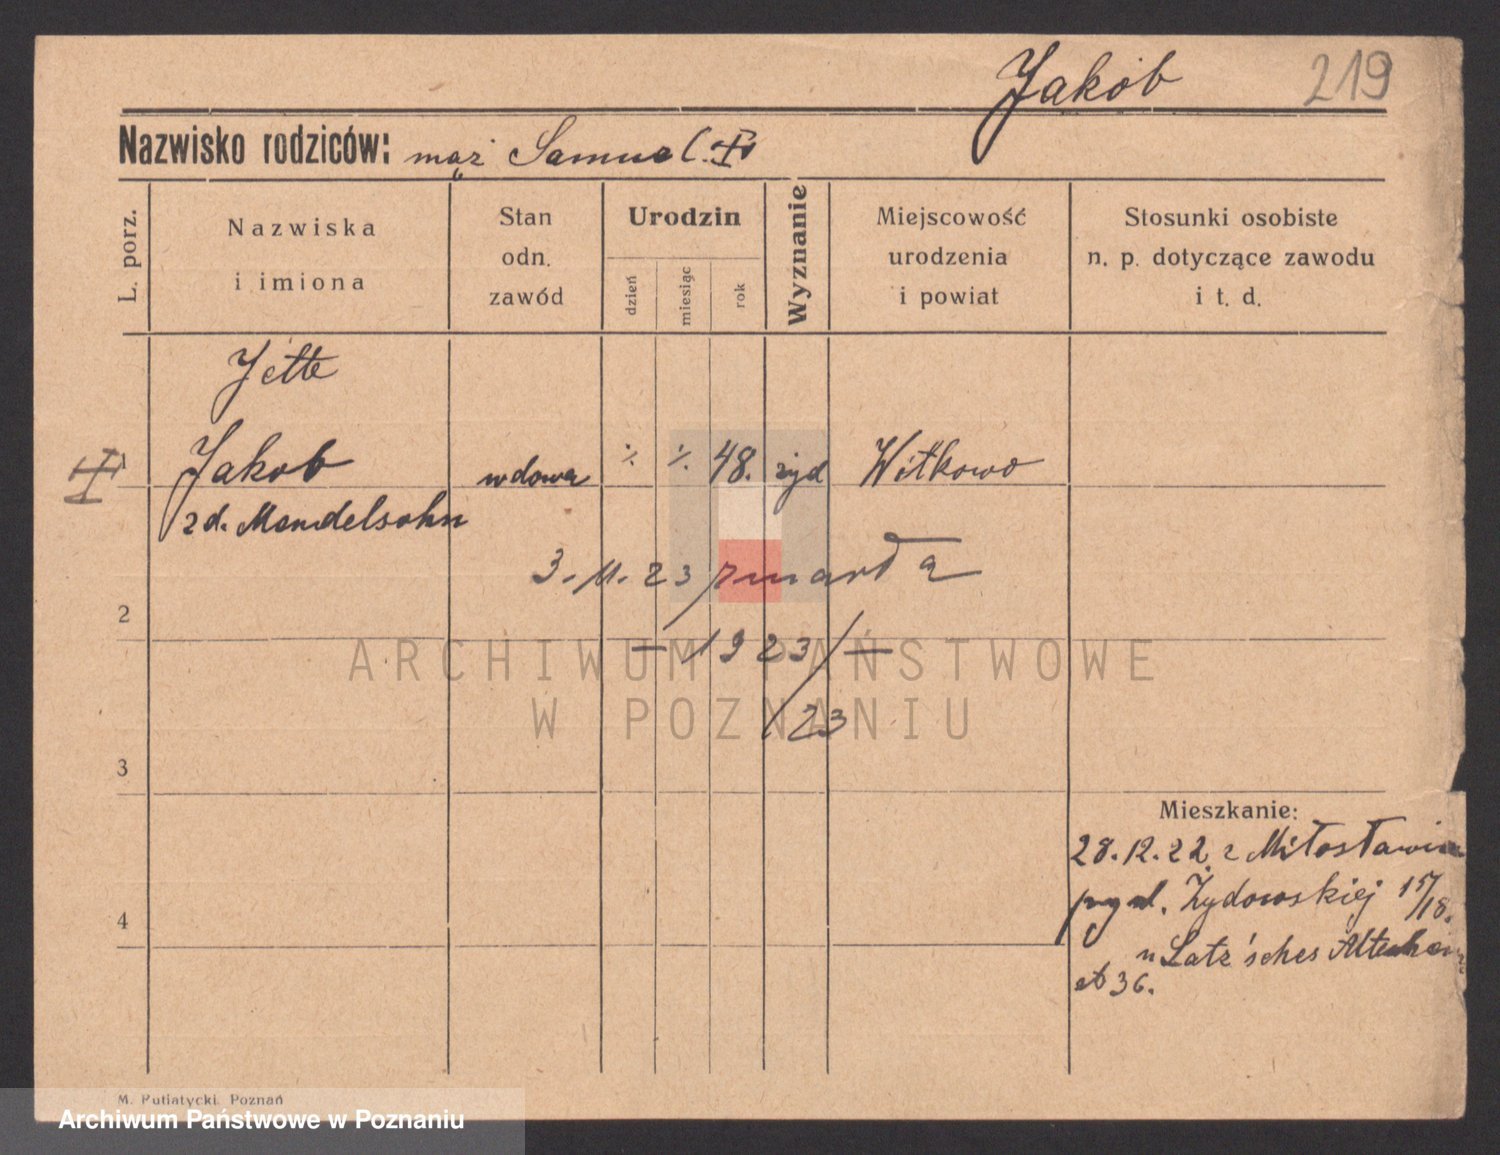 Jakób 219
Nazwisko rodziców: mąż Samuel.
L. porz.
Nazwiska
i imiona
Stan
odn.
zawód
Urodzin
dzień
miesiąc
rok
Wyznanie
Miejscowość
urodzenia
i powiat
Stosunki osobiste
n. p. dotyczące zawodu
i t. d.
Jette
1 Jakob wdowa ./. ./. 48. żyd Witkowo
zd. Mendelsohn
3.11.23 zmarła
2
— 1923/—
/23
3
Mieszkanie:
28.12.22 z Miłosławia
przy ul. Żydowskiej 15/18.
4
u Latz'sches
36.
ARCHIWUM PAŃSTWOWE
W POZNANIU
M. Putiatycki, Poznań
Archiwum Państwowe w Poznaniu